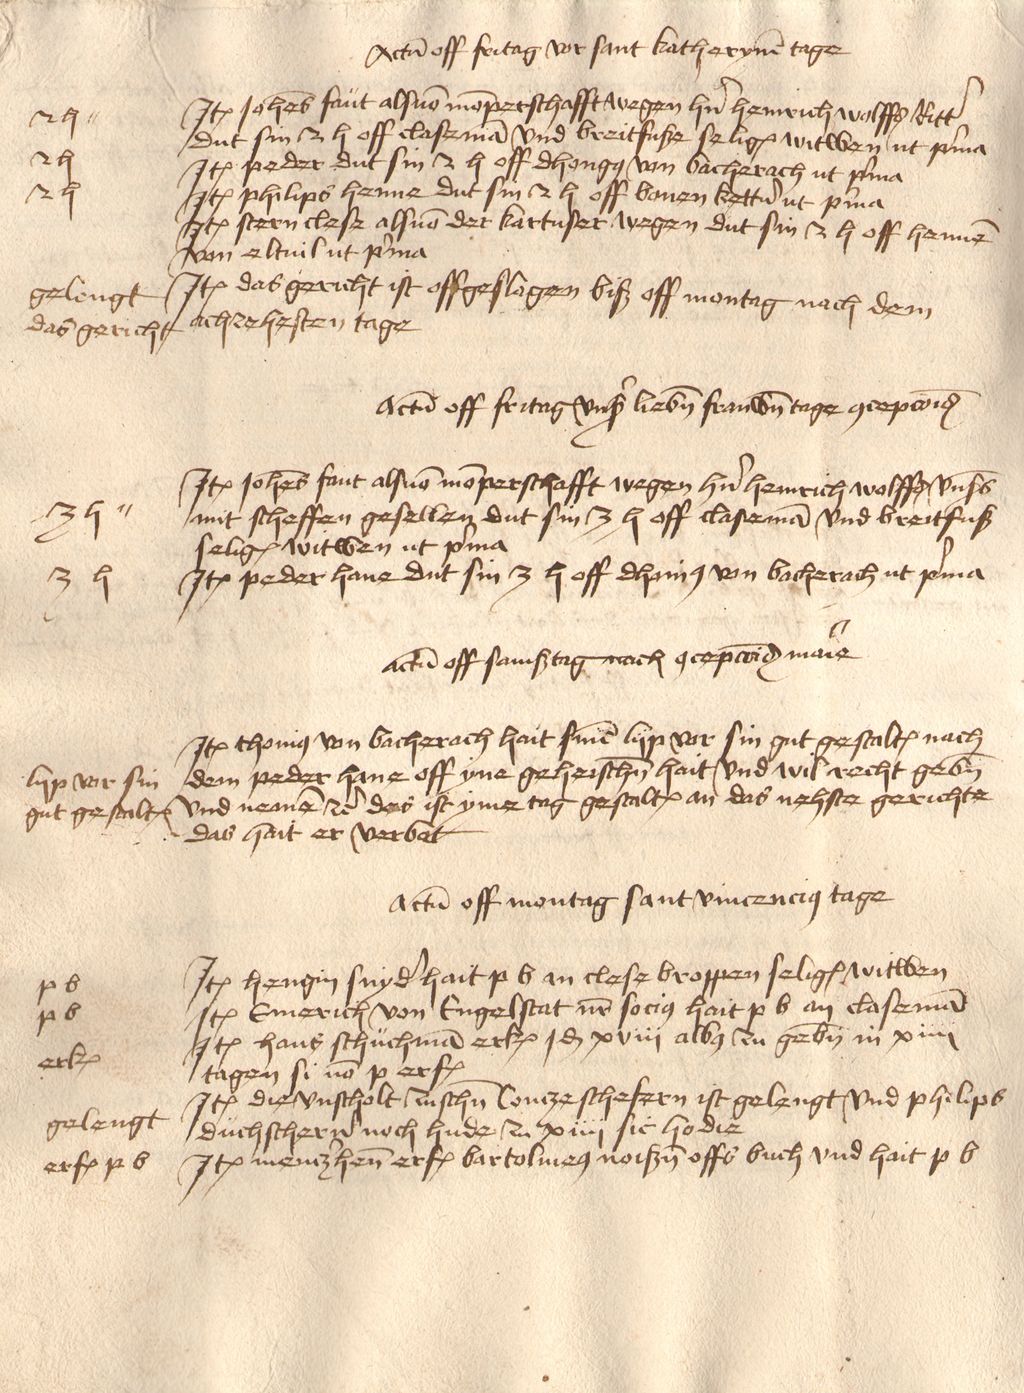 Actu͞ off fritag vor sant katheryne͞ tage
2 h Jt͛ Joh͞es faut alsuo͞ mo͞perschafft wegen h͛n heinrich wolffs Ritt͛
dut sin 2 h off clasema͞ vnd breitfuße selig͛ witwen ut p͛ma
2 h Jt͛ peder dut sin 2 h off dhong9 von bacherach ut p͛ma
2 h Jt͛ philips henne dut sin 2 h off bonen kett͛n ut p͛ma
Jt͛ stern clese alsuo͞ der kartuser wegen dut sin 2 h off henne͞
von eltuil ut p͛ma
gelengt Jt͛ das gericht ist offgeslagen biß off montag nach dem
das gericht achtzehesten tage
Actu͞ off fritag vns͛ lieb͞n frauw͞n tage 9cepco͞is
Jt͛ Joh͞es faut alsuo͞ mo͞perschafft wegen h͛n heinrich wolffs vns͛s
3 h mit scheffen gesellen dut sin 3 h off clasema͞ vnd breitfuß
selig͛ witwen ut p͛ma
3 h Jt͛ peder hane dut sin 3 h off dhoni9 von bacherach ut p͛ma
Actu͞ off samßtag nach 9cepco͞is ma͛ie
Jt͛ thoni9 von bacherach hait sine͞ lijp vor sin gut gestalt͛ nach
lijp vor sin dem peder hane off yne geheisch͞n hait vnd wil recht geb͞n
gut gestalt͛ vnd neme͞ r͞c des ist yme tag gestalt͛ an das nehste gerichte
das hait er verbot
Actu͞ off montag sant vincenci9 tage
p b Jt͛ hengin snyd͛ hait p b an clese broppen selig͛ witwen
p b Jt͛ Emerich von Engelstat n͞r soci9 hait p b an clasema͞
erk͛ Jt͛ hans schuchma͞ erk͛ Jd͛ xviii alb9 zu geb͞n in xiiii
tagen si no͞ p erf͛
gelengt Jt͛ die vnscholt zusch͞n Contze schefern ist gelengt vnd philips
duchscherer noch hude zu xiiii sic hodie
erf͛ p b Jt͛ mentz͛hen͞ erf͛ bartolme9 noiß͞n offs buch vnd hait p b